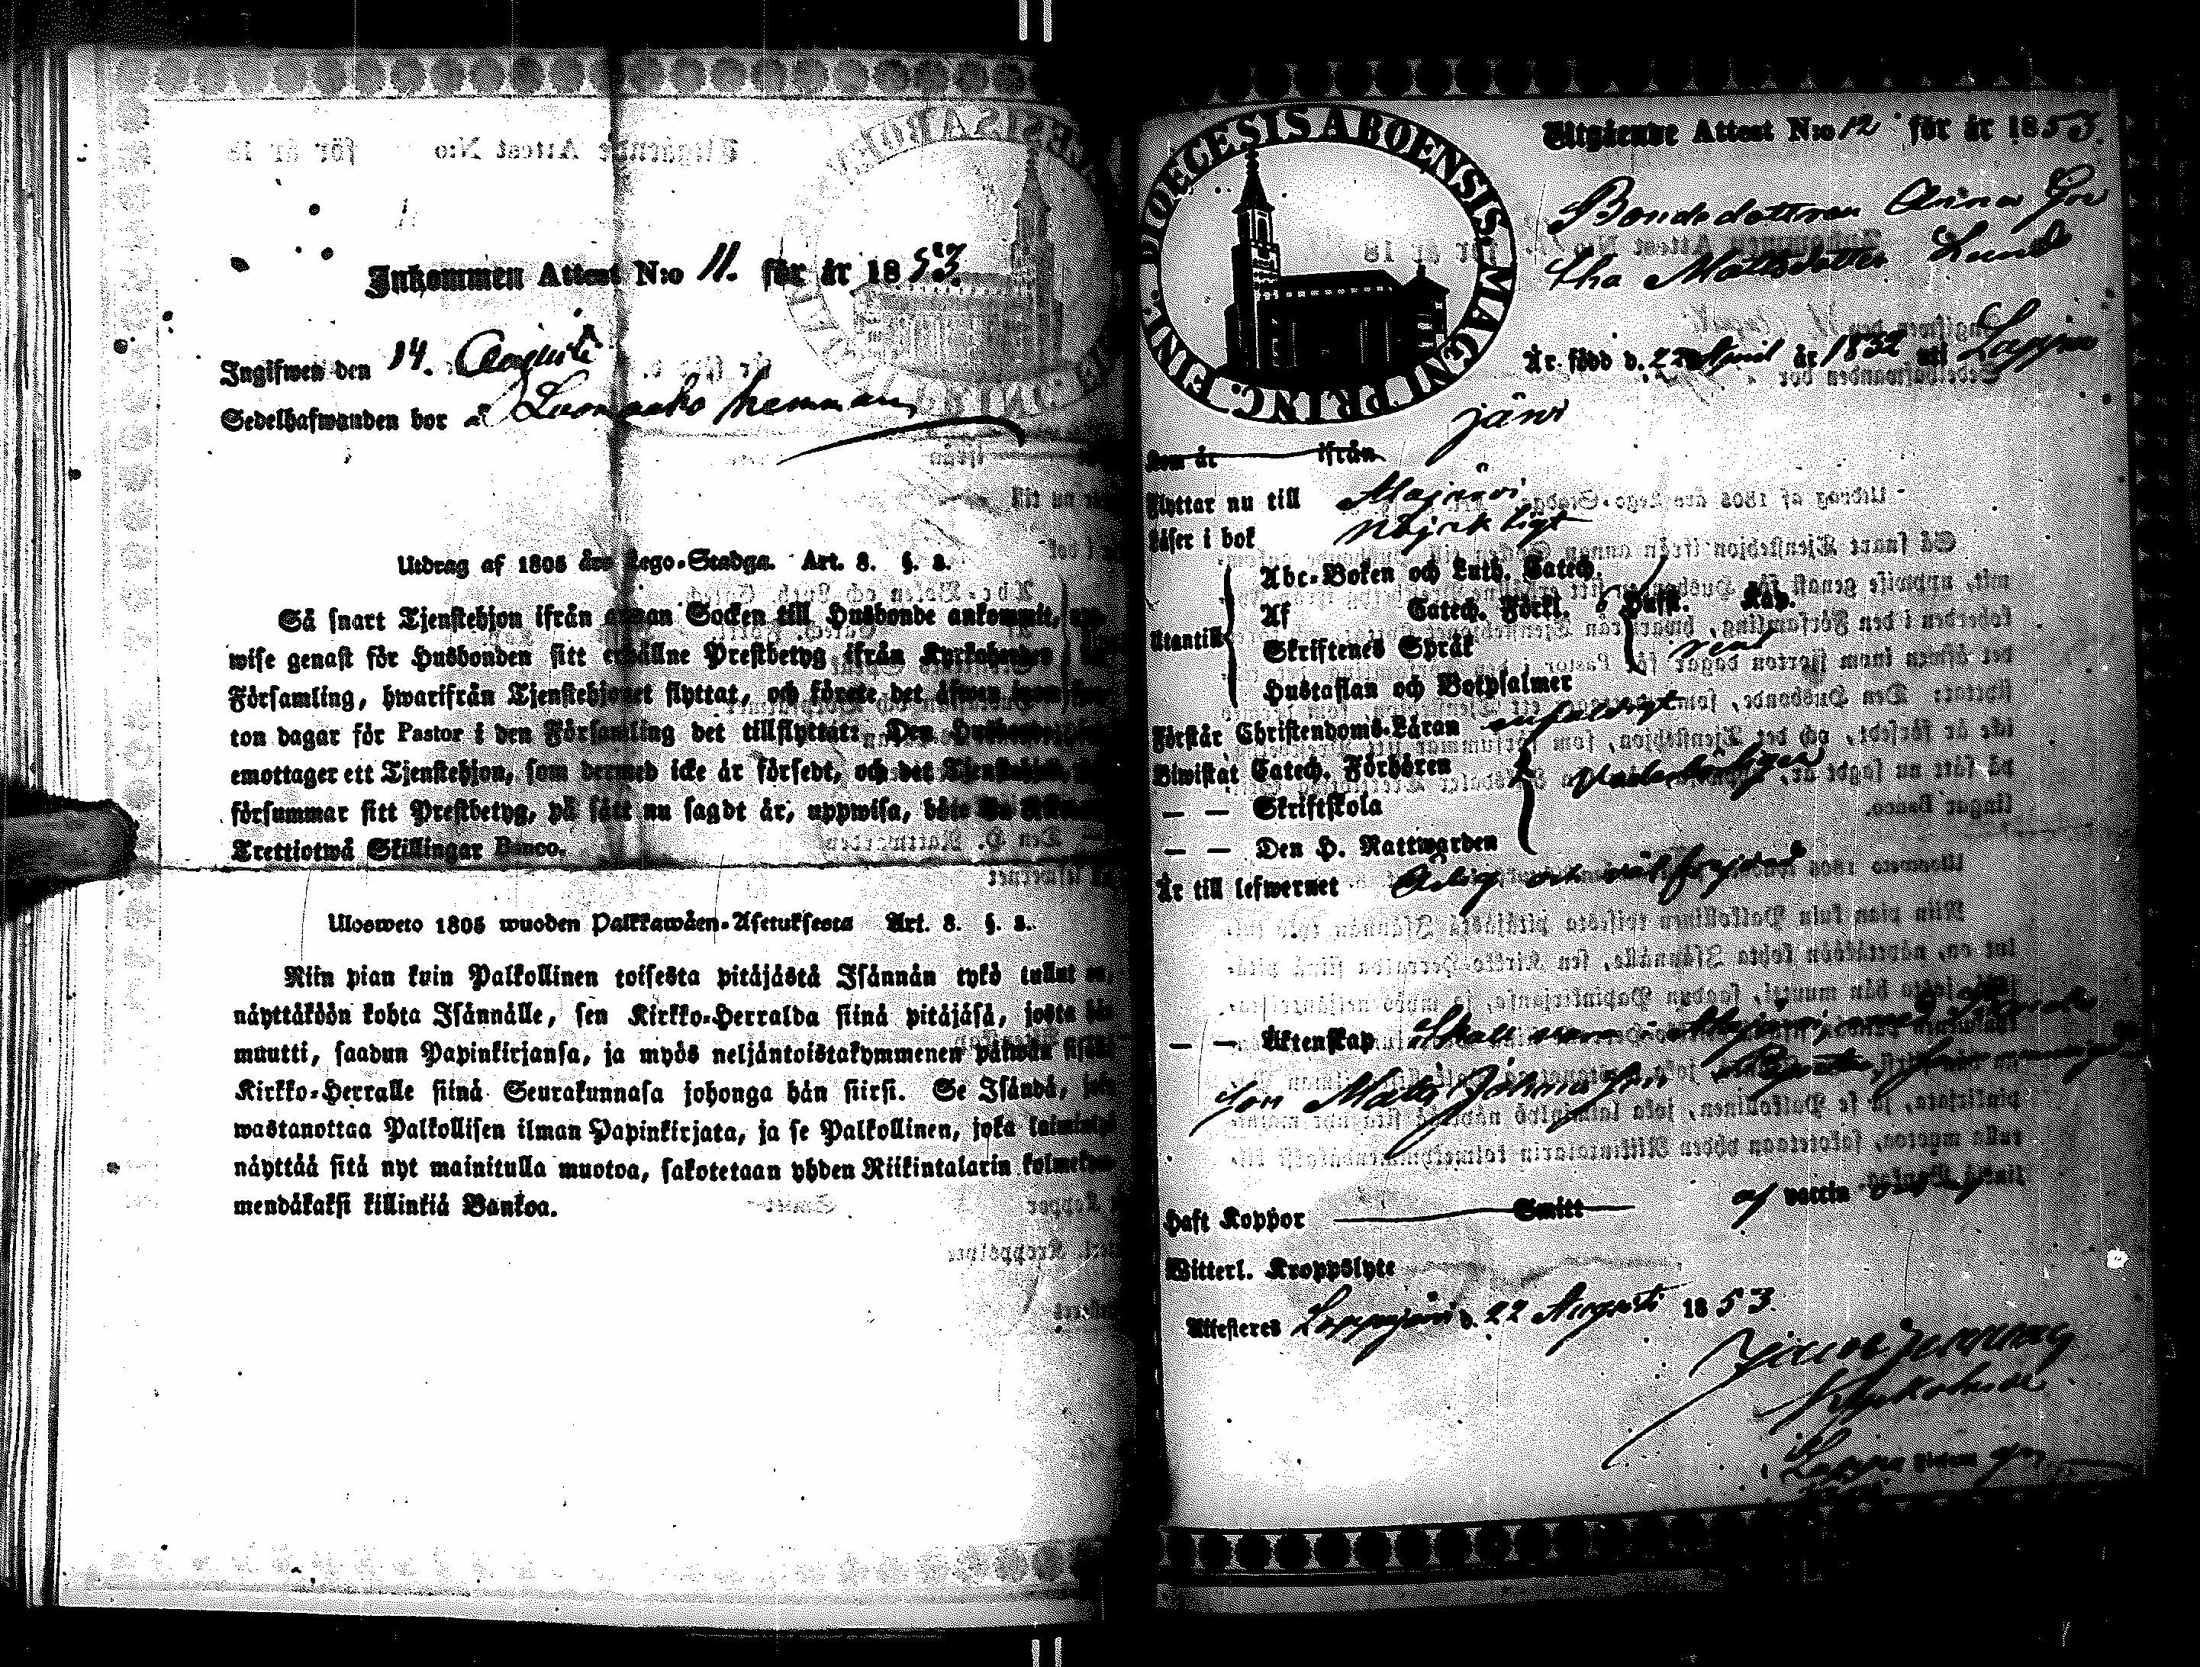 Inkommen Attest N:o 11. för år 1853.
Ingifwen den 14. Augusti
Sedelhafwanden bor å hemman
Utdrag af 1805 års Lego-Stadga. Art. 8. §. 2.
Så snart Tjenstehjon ifrån annan Socken till Husbonde ankommit,
wise genast för Husbonden sitt erhållne Prestbetyg ifrån Kyrkoherden
Församling, hwarifrån Tjenstehjonet flyttat, och förete det äfwen inom
ton dagar för Pastor i den Församling det tillflyttat: Den Husbonde,
emottager ett Tjenstehjon, som dermed icke är försedt, och det Tjenstehjon,
försummar sitt Prestbetyg, på sätt nu sagdt är, uppwisa, böte
Trettiotwå Skillingar Banco.
Ulosweto 1805 wuoden Palkkawäen-Asetuksesta Art. 8. §. 2.
Niin pian kuin Palkollinen toisesta pitäjästä Isännän tykö tullut on,
näyttäköön kohta Isännälle, sen Kirkko-Herralda siinä pitäjäsä, josta hän
muutti, saadun Papinkirjansa, ja myös neljäntoistakymmenen päiwän
Kirkko-Herralle siinä Seurakunnasa johonga hän siirsi. Se Isändä,
wastanottaa Palkollisen ilman Papinkirjata, ja se Palkollinen, joka
näyttää sitä nyt mainitulla muotoa, sakotetaan yhden Riikintalarin
mendäkaksi killinkiä Bankoa.
DIOECESIS ABOENSIS MAGNI PRINC. FINL.
Utgående Attest N:o 12 för år 1853.
Bondedottren Anna Gre
tha Mattsdotter Lund
Är född d. 22 April år 1832 uti Lappa
järvi
Kom år ifrån
Flyttar nu till Alajärvi
Läser i bok nöjaktigt
Utantill
Abc-Boken och Luth. Catech.
Af Catech. Förkl. Hufst. Kap.
Skriftenes Språk
Hustaflan och Botpsalmer
Förstår Christendoms-Läran enfaldigt
Biwistat Catech. Förhören
— — Skriftskola
— — Den H. Nattwarden
Är till lefwernet Ärlig och väl frejdad
— — Äktenskap
son Matts Johansson
Haft Koppor Smitt af vaccin
Witterl. Kroppslyte
Attesteras Lappajärvi d. 22 Augusti 1853.